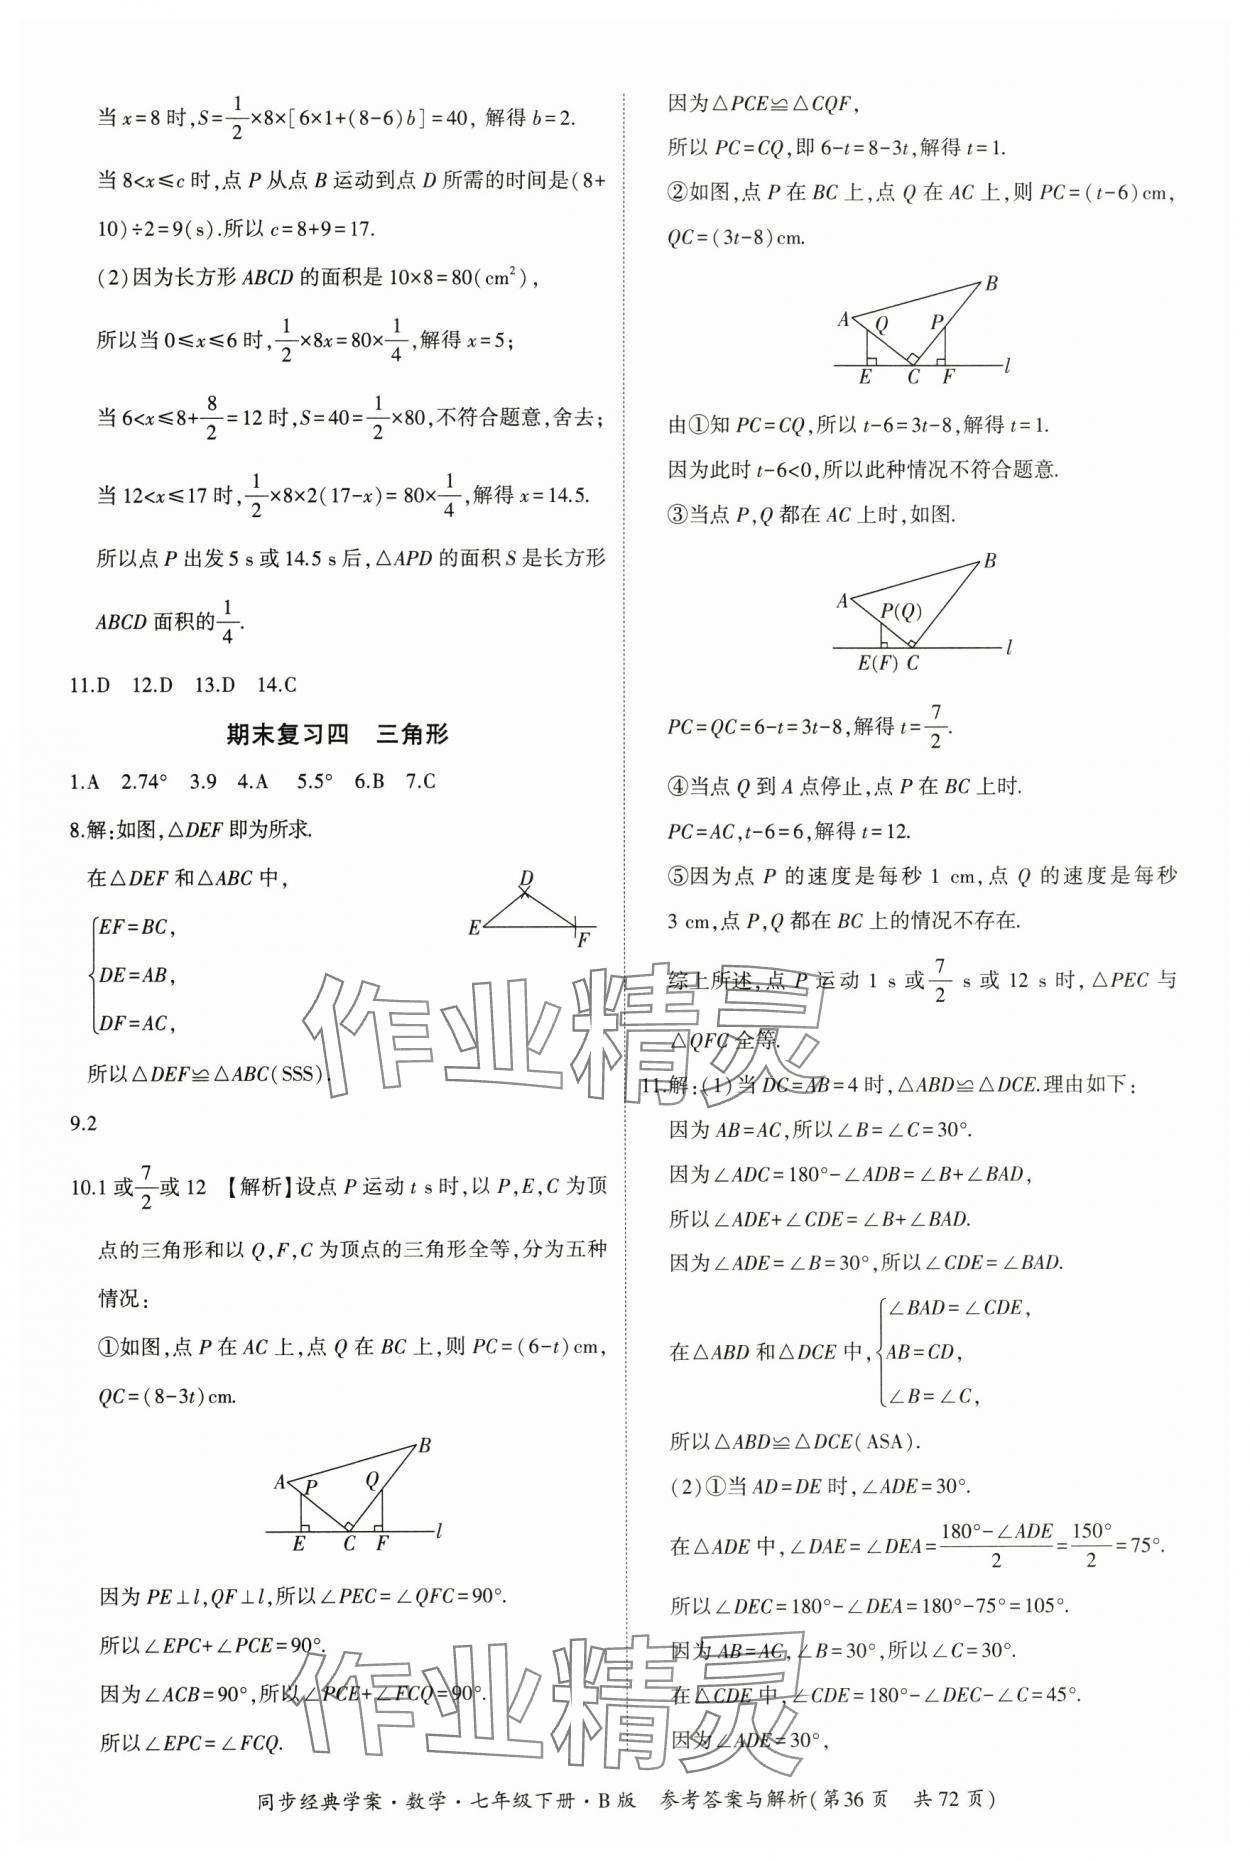 当 x=8 时,S=1/2×8×[6×1+(8-6)b]=40, 解得 b=2.
当 8<x≤c 时,点 P 从点 B 运动到点 D 所需的时间是(8+
10)÷2=9(s).所以 c=8+9=17.
(2)因为长方形 ABCD 的面积是 10×8=80(cm²),
所以当 0≤x≤6 时,1/2×8x=80×1/4,解得 x=5;
当 6<x≤8+8/2=12 时,S=40=1/2×80,不符合题意,舍去;
当 12<x≤17 时,1/2×8×2(17-x)=80×1/4,解得 x=14.5.
所以点 P 出发 5 s 或 14.5 s 后,△APD 的面积 S 是长方形
ABCD 面积的1/4.
11.D 12.D 13.D 14.C
期末复习四 三角形
1.A 2.74° 3.9 4.A 5.5° 6.B 7.C
8.解:如图,△DEF 即为所求.
在△DEF 和△ABC 中,
EF=BC,
DE=AB,
DF=AC,
D
E
F
所以△DEF≌△ABC(SSS).
9.2
10.1 或7/2或 12 【解析】设点 P 运动 t s 时,以 P,E,C 为顶
点的三角形和以 Q,F,C 为顶点的三角形全等,分为五种
情况:
①如图,点 P 在 AC 上,点 Q 在 BC 上,则 PC=(6-t)cm,
QC=(8-3t)cm.
B
A P Q
E C F l
因为 PE⊥l,QF⊥l,所以∠PEC=∠QFC=90°.
所以∠EPC+∠PCE=90°.
因为∠ACB=90°,所以∠PCE+∠FCQ=90°.
所以∠EPC=∠FCQ.
因为△PCE≌△CQF,
所以 PC=CQ,即 6-t=8-3t,解得 t=1.
②如图,点 P 在 BC 上,点 Q 在 AC 上,则 PC=(t-6)cm,
QC=(3t-8)cm.
B
A Q P
E C F l
由①知 PC=CQ,所以 t-6=3t-8,解得 t=1.
因为此时 t-6<0,所以此种情况不符合题意.
③当点 P,Q 都在 AC 上时,如图.
B
A P(Q)
E(F) C l
PC=QC=6-t=3t-8,解得 t=7/2.
④当点 Q 到 A 点停止,点 P 在 BC 上时.
PC=AC,t-6=6,解得 t=12.
⑤因为点 P 的速度是每秒 1 cm,点 Q 的速度是每秒
3 cm,点 P,Q 都在 BC 上的情况不存在.
综上所述,点 P 运动 1 s 或7/2 s 或 12 s 时,△PEC 与
△QFC 全等.
11.解:(1)当 DC=AB=4 时,△ABD≌△DCE.理由如下:
因为 AB=AC,所以∠B=∠C=30°.
因为∠ADC=180°-∠ADB=∠B+∠BAD,
所以∠ADE+∠CDE=∠B+∠BAD.
因为∠ADE=∠B=30°,所以∠CDE=∠BAD.
∠BAD=∠CDE,
在△ABD 和△DCE 中,AB=CD,
∠B=∠C,
所以△ABD≌△DCE(ASA).
(2)①当 AD=DE 时,∠ADE=30°.
在△ADE 中,∠DAE=∠DEA=(180°-∠ADE)/2=150°/2=75°.
所以∠DEC=180°-∠DEA=180°-75°=105°.
因为 AB=AC,∠B=30°,所以∠C=30°.
在△CDE 中,∠CDE=180°-∠DEC-∠C=45°.
因为∠ADE=30°,
作业精灵
作业精灵
同步经典学案·数学·七年级下册·B 版 参考答案与解析(第 36 页 共 72 页)